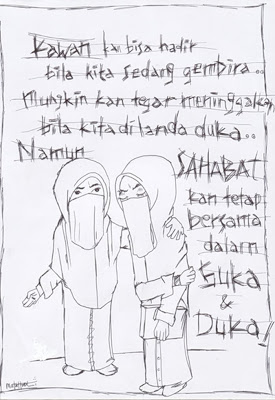 Kawan kan bisa hadir
bila kita sedang gembira..
mungkin kan tegar meninggalkan
bila kita di landa duka..
Namun
SAHABAT
kan tetap
bersama
dalam
Suka
&
Duka!